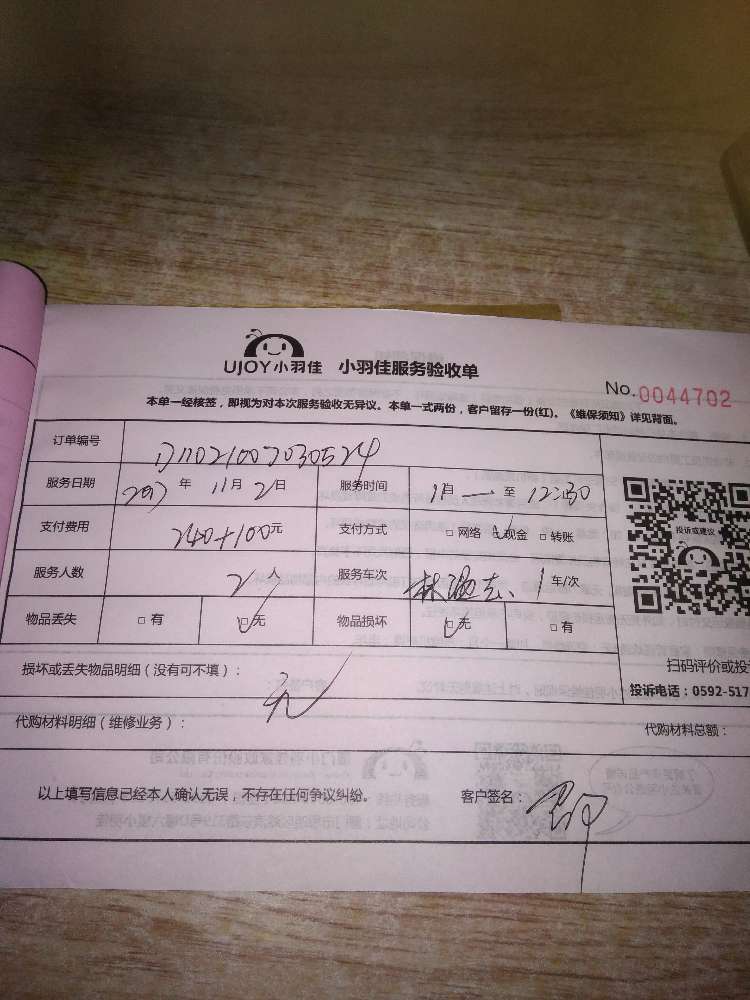 UJOY小羽佳 小羽佳服务验收单
No.0044702
本单一经核签，即视为对本次服务验收无异议。本单一式两份，客户留存一份(红)。《维保须知》详见背面。
订单编号
服务日期 年 11月2日 服务时间 至 12:30
支付费用 240+100元 支付方式 □网络 □现金 □转账
服务人数 2人 服务车次 1车/次
物品丢失 □有 □无 物品损坏 □无 □有
投诉或建议
扫码评价或投
损坏或丢失物品明细（没有可不填）： 无
投诉电话：0592-517
代购材料明细（维修业务）： 代购材料总额：
以上填写信息已经本人确认无误，不存在任何争议纠纷。 客户签名：